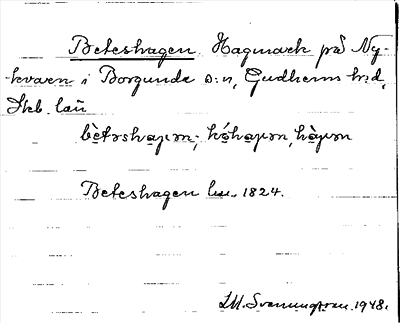 Beteshagen. Hagmark på Ny-
kvarn i Borgunda s:n, Gudhems h:d,
Skb. län
bètəshaɡən; kóhaɡən, hàɡən
Beteshagen lm. 1824.
I.M. Svanungsson. 1948.